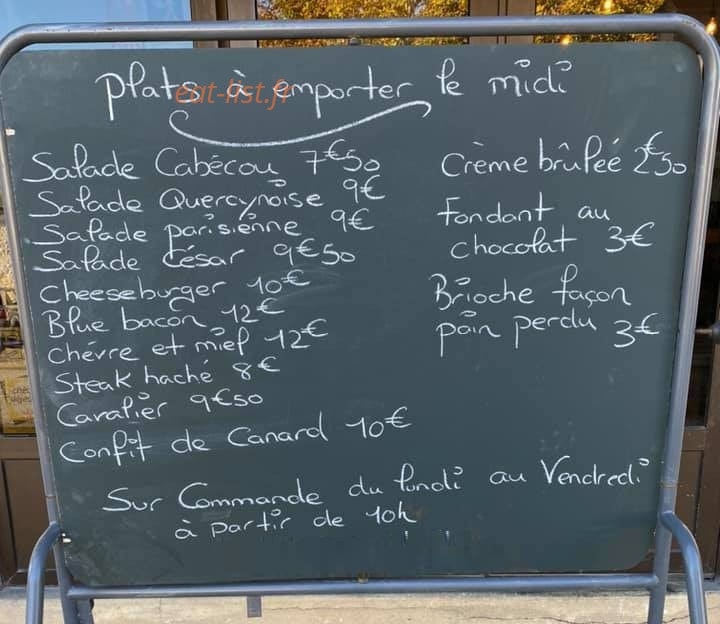 plats à emporter le midi
eat-list.fr
Salade Cabécou 7€50
Salade Quercynoise 9€
Salade parisiènne 9€
Salade César 9€50
Cheeseburger 10€
Blue bacon 12€
chévre et miel 12€
Steak haché 8€
Cavalier 9€50
Confit de Canard 10€
Crème brûleé 2€50
Fondant au
chocolat 3€
Brioche façon
pain perdu 3€
Sur Commande du lundi au Vendredi
à partir de 10h